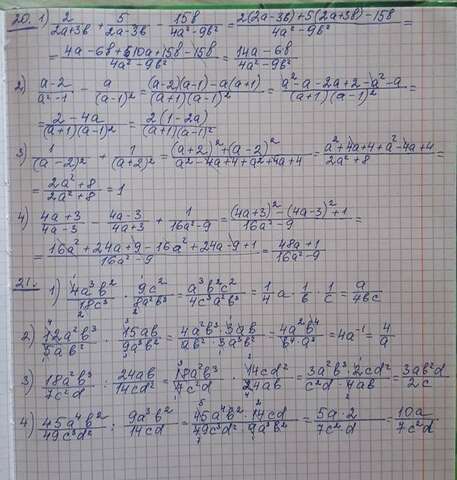 20. 1) 2/(2a+3b) + 5/(2a-3b) - 15b/(4a²-9b²) = (2(2a-3b)+5(2a+3b)-15b)/(4a²-9b²) =
= (4a-6b+10a+15b-15b)/(4a²-9b²) = (14a-6b)/(4a²-9b²)
2) (a-2)/(a²-1) - a/(a-1)² = ((a-2)(a-1)-a(a+1))/((a+1)(a-1)²) = (a²-a-2a+2-a²-a)/((a+1)(a-1)²) =
= (2-4a)/((a+1)(a-1)²) = 2(1-2a)/((a+1)(a-1)²
3) 1/(a-2)² + 1/(a+2)² = ((a+2)²+(a-2)²)/(a²-4a+4+a²+4a+4) = (a²+4a+4+a²-4a+4)/(2a²+8) =
= (2a²+8)/(2a²+8) = 1
4) (4a+3)/(4a-3) - (4a-3)/(4a+3) + 1/(16a²-9) = ((4a+3)²-(4a-3)²+1)/(16a²-9) =
= (16a²+24a+9-16a²+24a-9+1)/(16a²-9) = (48a+1)/(16a²-9)
21. 1) 4a³b²/18c³ · 9c²/8a²b³ = a³b²c²/4c³a²b³ = 1/4 a · 1/b · 1/c = a/4bc
2) 12a²b³/5ab² · 15ab/9a³b² = 4a²b³·3ab/ab²·3a³b² = 4a²b⁴/b⁴a³ = 4a⁻¹ = 4/a
3) 18a²b³/7c²d : 24ab/14cd² = 18a²b³/7c²d · 14cd²/24ab = 3a²b³·2cd²/c²d·4ab = 3ab²d/2c
4) 45a⁴b²/49c³d² : 9a³b²/14cd = 45a⁴b²·14cd/49c³d²·9a³b² = 5a·2/7c²·d = 10a/7c²d